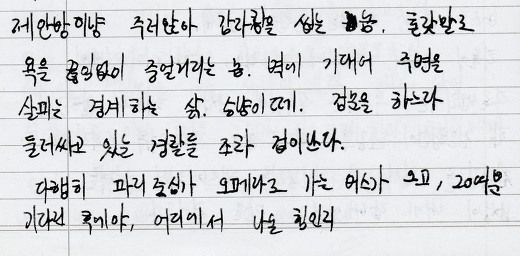 제 안방이냥 주저앉아 감자칩을 씹는 놈. 혼잣말로
욕을 끊임없이 중얼거리는 놈. 벽에 기대어 주변을
살피는 경계하는 삶. 승냥이떼. 검문을 하느라
둘러싸고 있는 경찰들 조차 겁이난다.
다행히 파리 중심가 오페라로 가는 버스가 오고, 20여분
기다린 후에야, 어디에서 나온